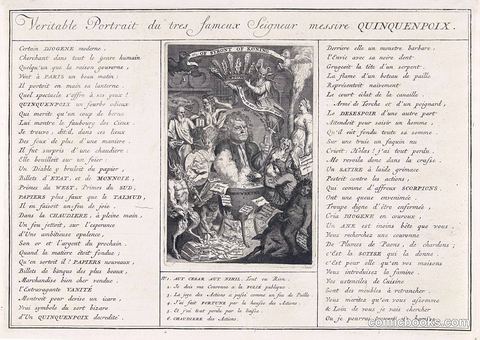 Veritable Portrait du tres fameux Seigneur messire QUINQUENPOIX.
Certain DIOGENE moderne,
Cherchant dans tout le genre humain
Quelqu'un que la raison gouverne,
Vint à PARIS un beau matin:
Il portoit en main sa lanterne:
Quel spectacle s'offre à ses yeux!
QUINQUENPOIX un fourbe odieux
Qui merite qu'un coup de berne
Lui montre le faubourg des Cieux.
Je trouve, dit-il, dans ces lieux
Des foux de plus d'une maniere:
Il fut surpris d'une chaudiere:
Elle bouilloit sur un foier:
Un Diable y bruloit du papier,
Billets d'ETAT, et de MONNOIE,
Primes du WEST, Primes du SUD,
PAPIERS plus faux que le TALMUD,
Il en faisoit un feu de joie.
Dans la CHAUDIERE, à pleine main,
Un fou jettoit, sur l'esperance
D'une ambitieuse opulence,
Son or et l'argent du prochain:
Quand la matiere étoit fondue;
Qu'en sortoit-il? PAPIERS nouveaux;
Billets de banque des plus beaux,
Marchandise bien cher vendue
L'extravagante VANITÉ
Montroit pour devise un icare,
Vrai symbole du sort bizare
D'un QUINQUENPOIX décredité.
OF STRONT OF KONING
N.º 1. AUT CESAR AUT NIHIL, Tout ou Rien.
2. Je dois ma Couronne à la FOLIE publique
3. La joye des Actions a passé comme un feu de Paille
4. J'ai fait FORTUNE par la hausse des Actions.
5. Et j'ai tout perdu par la baisse.
6. CHAUDIERE des Actions.
Derriere elle un monstre barbare,
L'Envie avec sa noire dent
Grugeoit la tête d'un serpent.
La flame d'un boteau de paille
Representoit naivement
Le court éclat de la canaille
Armé de Torche et d'un poignard,
Le DESESPOIR d'une autre part
Attendoit pour saisir un homme,
Qu'il eût fondu toute sa somme
Sur une truie un faquin nu
Crioit: Hélas! j'ai tout perdu.
Me revoila donc dans la crasse.
Un SATIRE à laide grimace
Pestoit contre les actions,
Qui comme d'affreux SCORPIONS,
Ont une queue envenimée.
Troupe digne d'être enfermée,
Cria DIOGENE en couroux,
Un ANE est moins bête que vous:
Vous recherchez une couronne
De Plumes de Paons, de chardons;
C'est la SOTISE qui la donne:
C'est pour elle qu'en vos maisons
Vous introduisez la famine.
Vos ustenciles de Cuisine
Sont des meubles à retrancher.
Vous meritez qu'on vous assomme
& Loin de vous je vais chercher
Ou je pourrai trouver un homme.
comicbooks.com